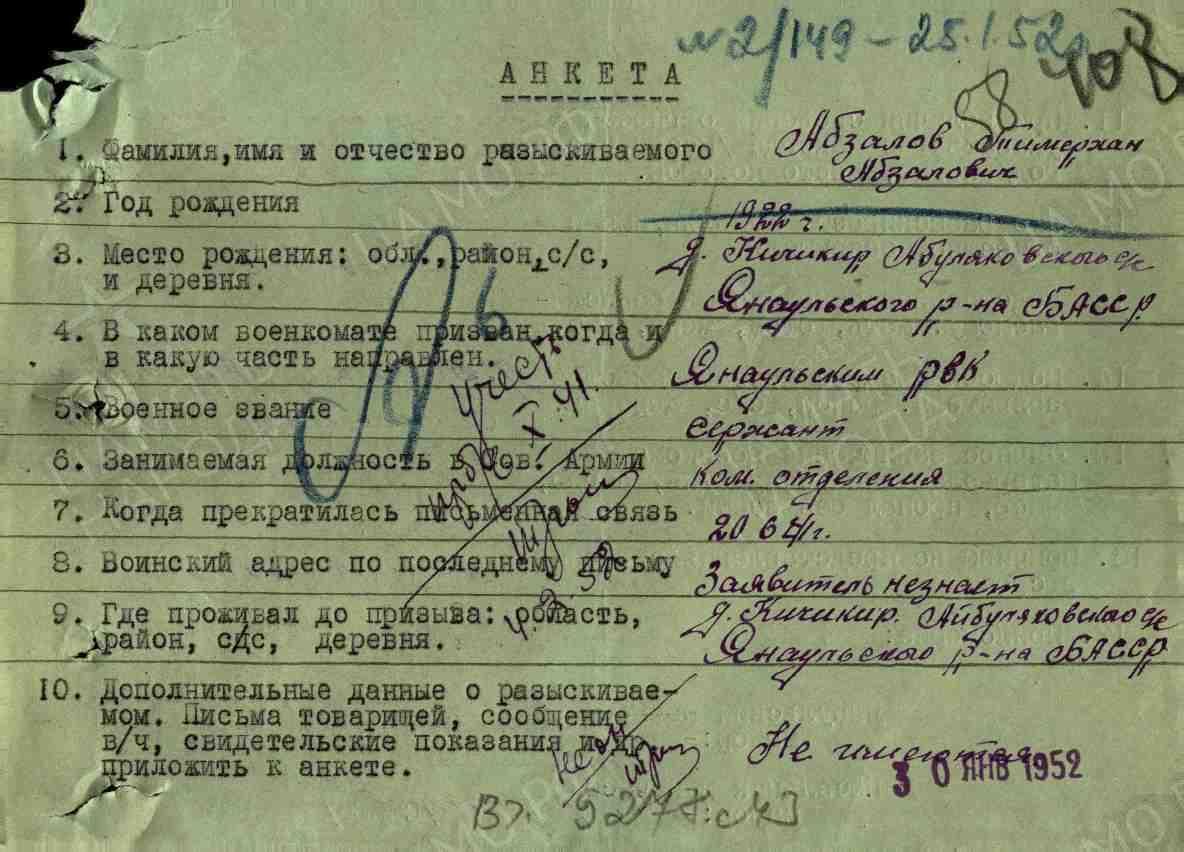 № 2/149 - 25.1.52г
108
58
АНКЕТА
1. Фамилия, имя и отчество разыскиваемого Абзалов Тимерхан
Абзалович
2. Год рождения 1922 г.
3. Место рождения: обл., район, с/с, д. Кичикир Абуляковского с/с
и деревня. Янаульского р-на БАССР
4. В каком военкомате призван, когда и
в какую часть направлен. Янаульским РВК
5. Военное звание сержант
6. Занимаемая должность в Сов. Армии ком. отделения
7. Когда прекратилась письменная связь 20 6 41г.
8. Воинский адрес по последнему письму Заявитель незнает
9. Где проживал до призыва: область, д. Кичикир. Айбуляковского с/с
район, с/с, деревня. Янаульского р-на БАССР
10. Дополнительные данные о разыскивае-
мом. Письма товарищей, сообщение
в/ч, свидетельские показания и др.
приложить к анкете. Не имеются
30 ЯНВ 1952
X. 41.